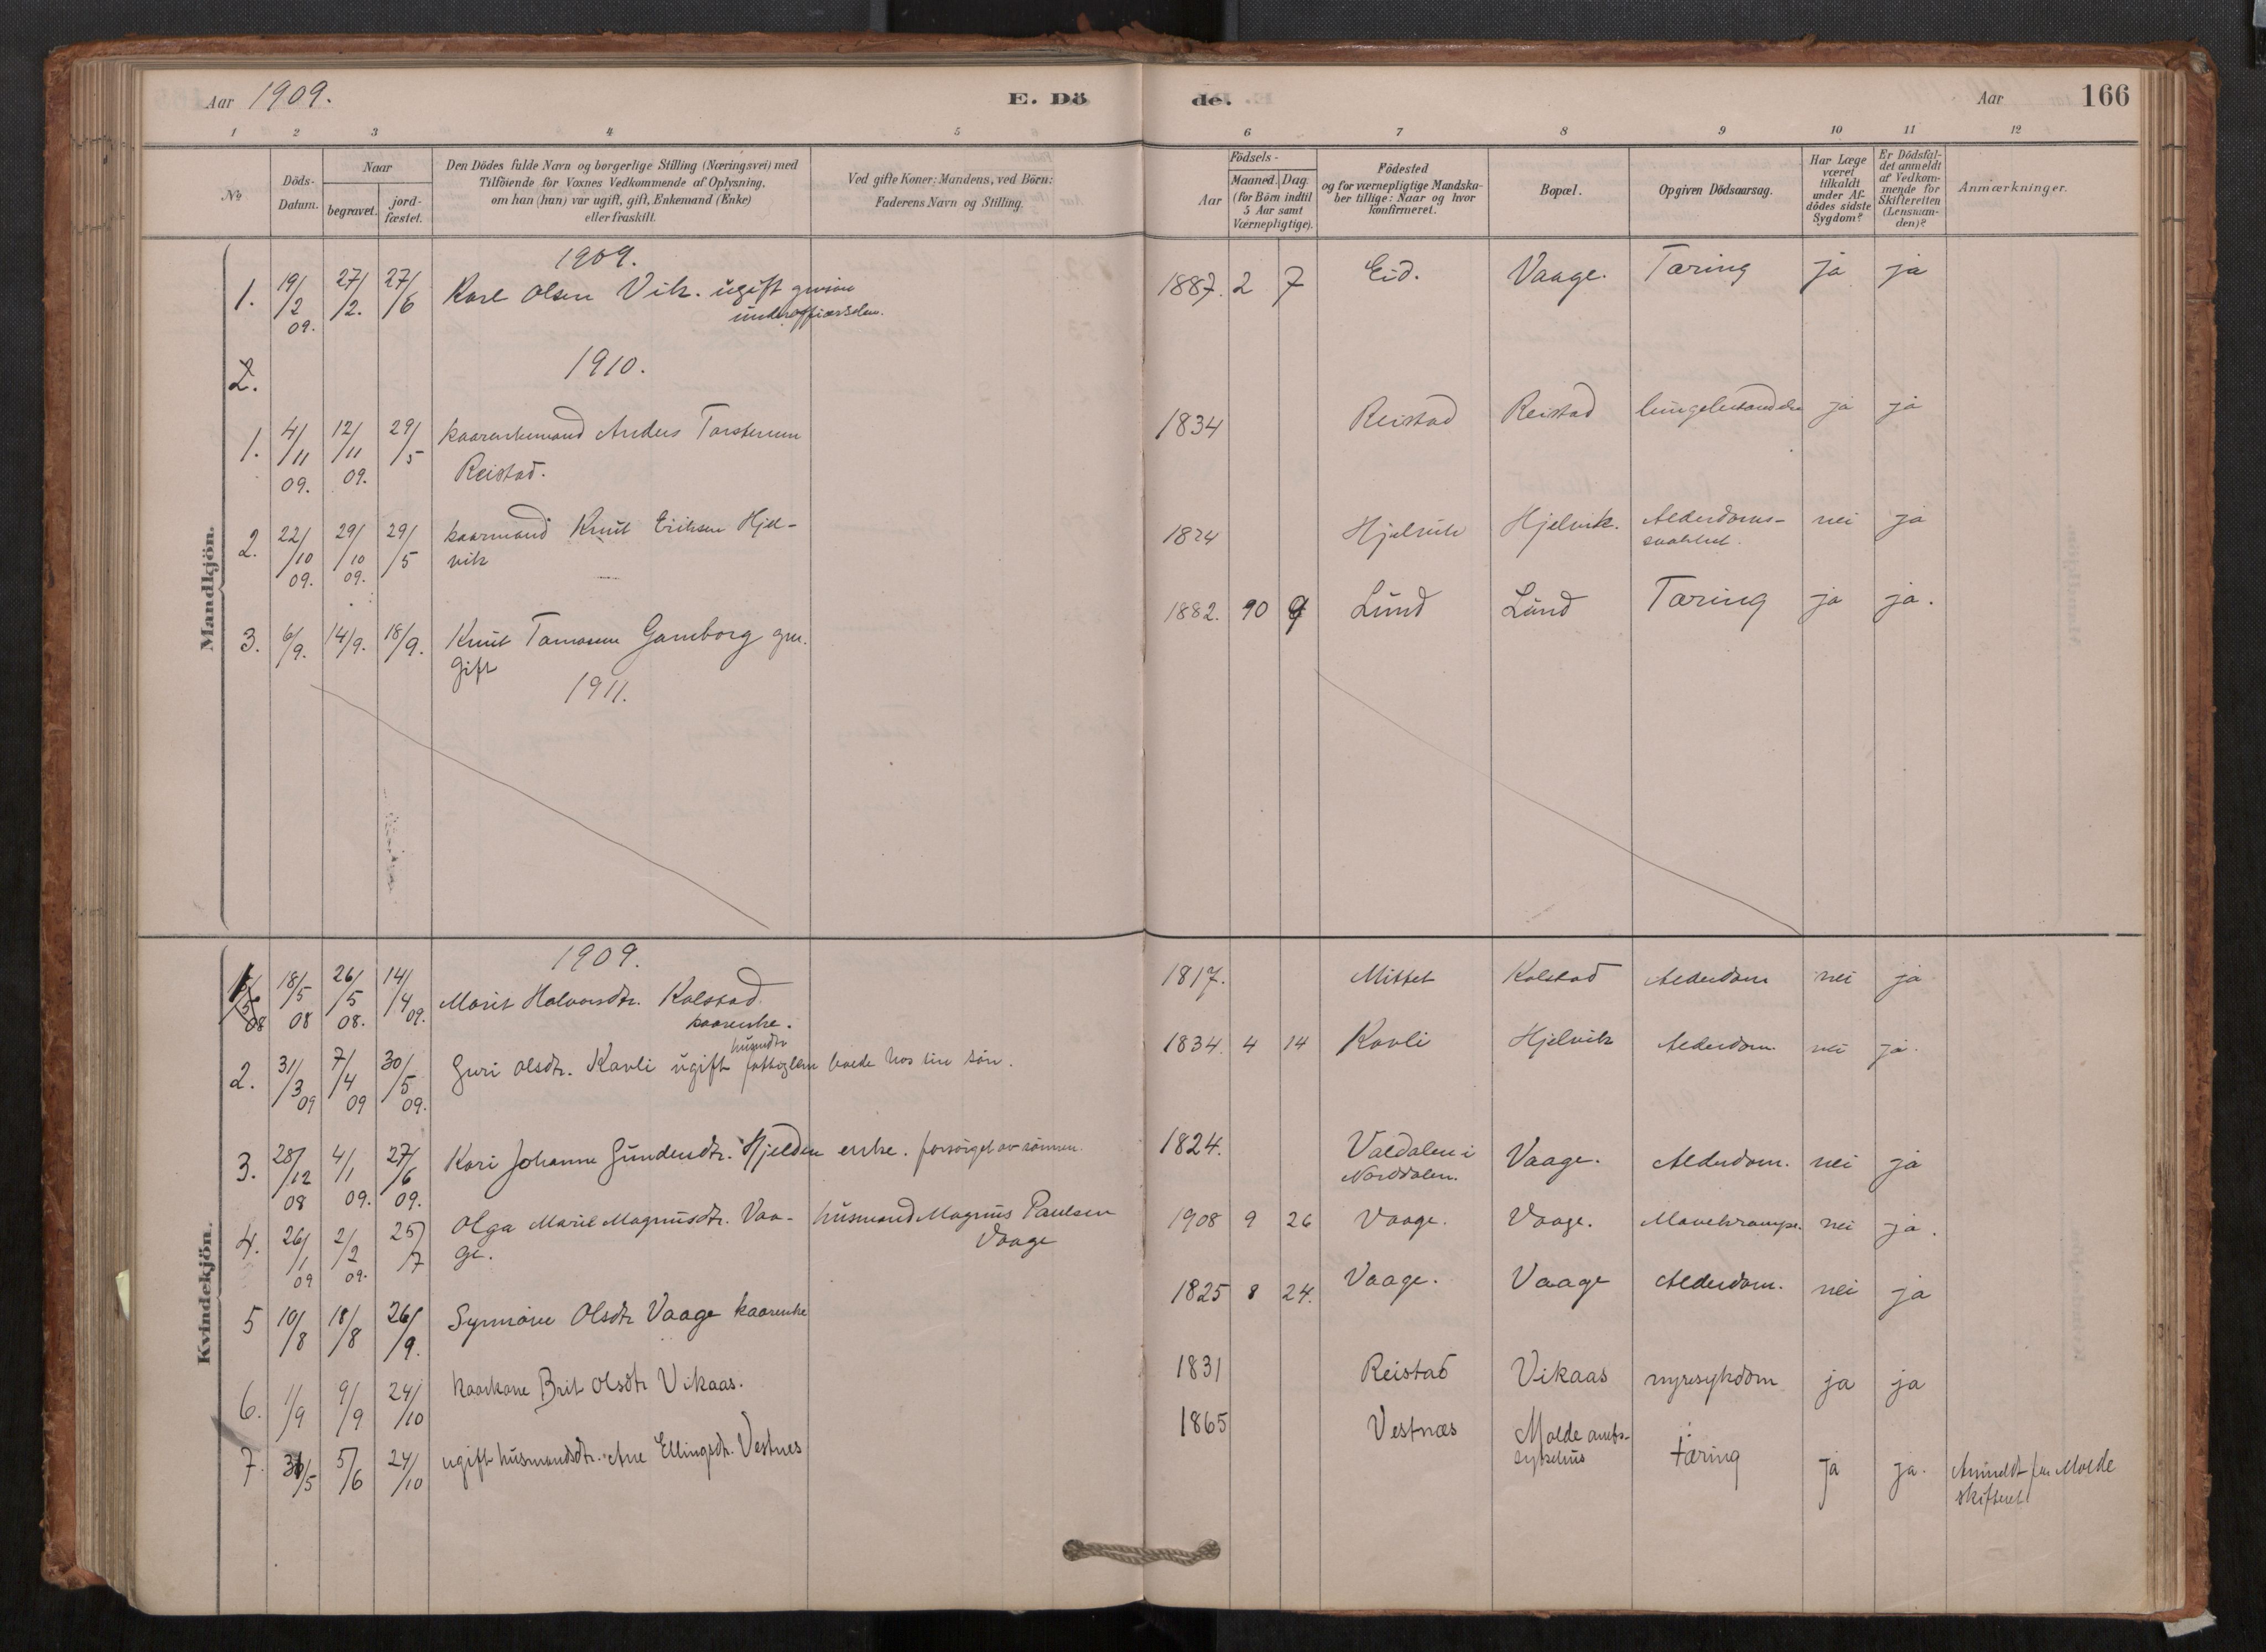 Aar 1909. E. Dö de. Aar 166
1 2 3 4 5 6 7 8 9 10 11 12
№
Döds-
Datum.
Naar
begravet.
jord-
fæstet.
Den Dödes fulde Navn og borgerlige Stilling (Næringsvei) med
Tilföiende for Voxnes Vedkommende af Oplysning,
om han (hun) var ugift, gift, Enkemand (Enke)
eller fraskilt.
Ved gifte Koner: Mandens, ved Börn:
Faderens Navn og Stilling.
Födsels-
Aar
Maaned. Dag.
(for Börn indtil
5 Aar samt
Værnepligtige).
Födested
og for værnepligtige Mandska-
ber tillige: Naar og hvor
konfirmeret.
Bopæl.
Opgiven Dödsaarsag.
Har Læge
været
tilkaldt
under Af-
dödes sidste
Sygdom?
Er Dödsfal-
det anmeldt
af Vedkom-
mende for
Skifteretten
(Lensman-
den)?
Anmærkninger.
Mandkjön.
1909.
1. 19/2 09. 27/2. 27/6 Karl Olsen Vik. ugift 1887. 2 7 Eid. Vaage. Tæring ja ja
2.
1910.
1. 4/11 09. 12/11 09. 29/5 kaarenkemand Anders Torstensen 1834 Reistad Reistad ja ja
Reistad.
2. 22/10 09. 29/10 09. 29/5 kaarmand Knut Eriksen Hjel- 1824 Hjelvik Hjelvik. Alderdoms- nei ja
vik svakhet.
3. 6/9. 14/9. 18/9. Knut Tomasen Gamborg gm. 1882. 10 9 Lund Lund Tæring ja ja.
Gift
1911.
Kvindekjön.
1909.
18/5 08 26/5 08. 14/4 09. Marit Halvorsdtr. Kolstad. 1817. Mittet Kolstad Alderdom nei ja
kaarenke.
husmdtr
2. 31/3 09 7/4 09 30/5 09. Guri Olsdtr. Kavli ugift fattiglem boede hos sin sön. 1834. 4 14 Kavli Hjelvik Alderdom. nei ja.
3. 28/12 08 4/1 09. 27/6 09. Kari Johanne Gundersdtr. Hjelden enke. forsörget av sönnen. 1824. Valdalen i Vaage. Alderdom. nei ja
Norddalen.
4. 26/1 09 2/2 09. 25/7 Olga Marie Magnusdtr. Vaa- husmand Magnus Paulsen 1908 9 26 Vaage. Vaage. Mavekrampe. nei ja.
ge. Vaage
5 10/8 18/8 26/9. Synnöve Olsdtr Vaage kaarenke 1825 8 24. Vaage. Vaage Alderdom. nei ja
6. 1/9 9/9 24/10 kaarkone Brit Olsdtr Vikaas. 1831 Reistad Vikaas nyresykdom ja ja
7. 31/5 5/6 24/10 ugift husmandsdtr. Ane Ellingsdtr. Vestnes 1865 Vestnæs Molde amts- tæring ja ja. Anmeldt for Molde
sykehus skifteret